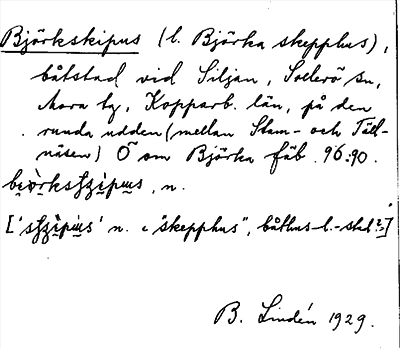 Björkskipus (l. Björka skepphus),
båtstad vid Siljan, Sollerö sn,
Mora tg, Kopparb. län, på den
runda udden (mellan Stam- och Täll-
näsen) Ö om Björka fäb. 96:90.
n.
['s n. "skepphus", båthus-l.-stad?]
B. Lindén 1929.